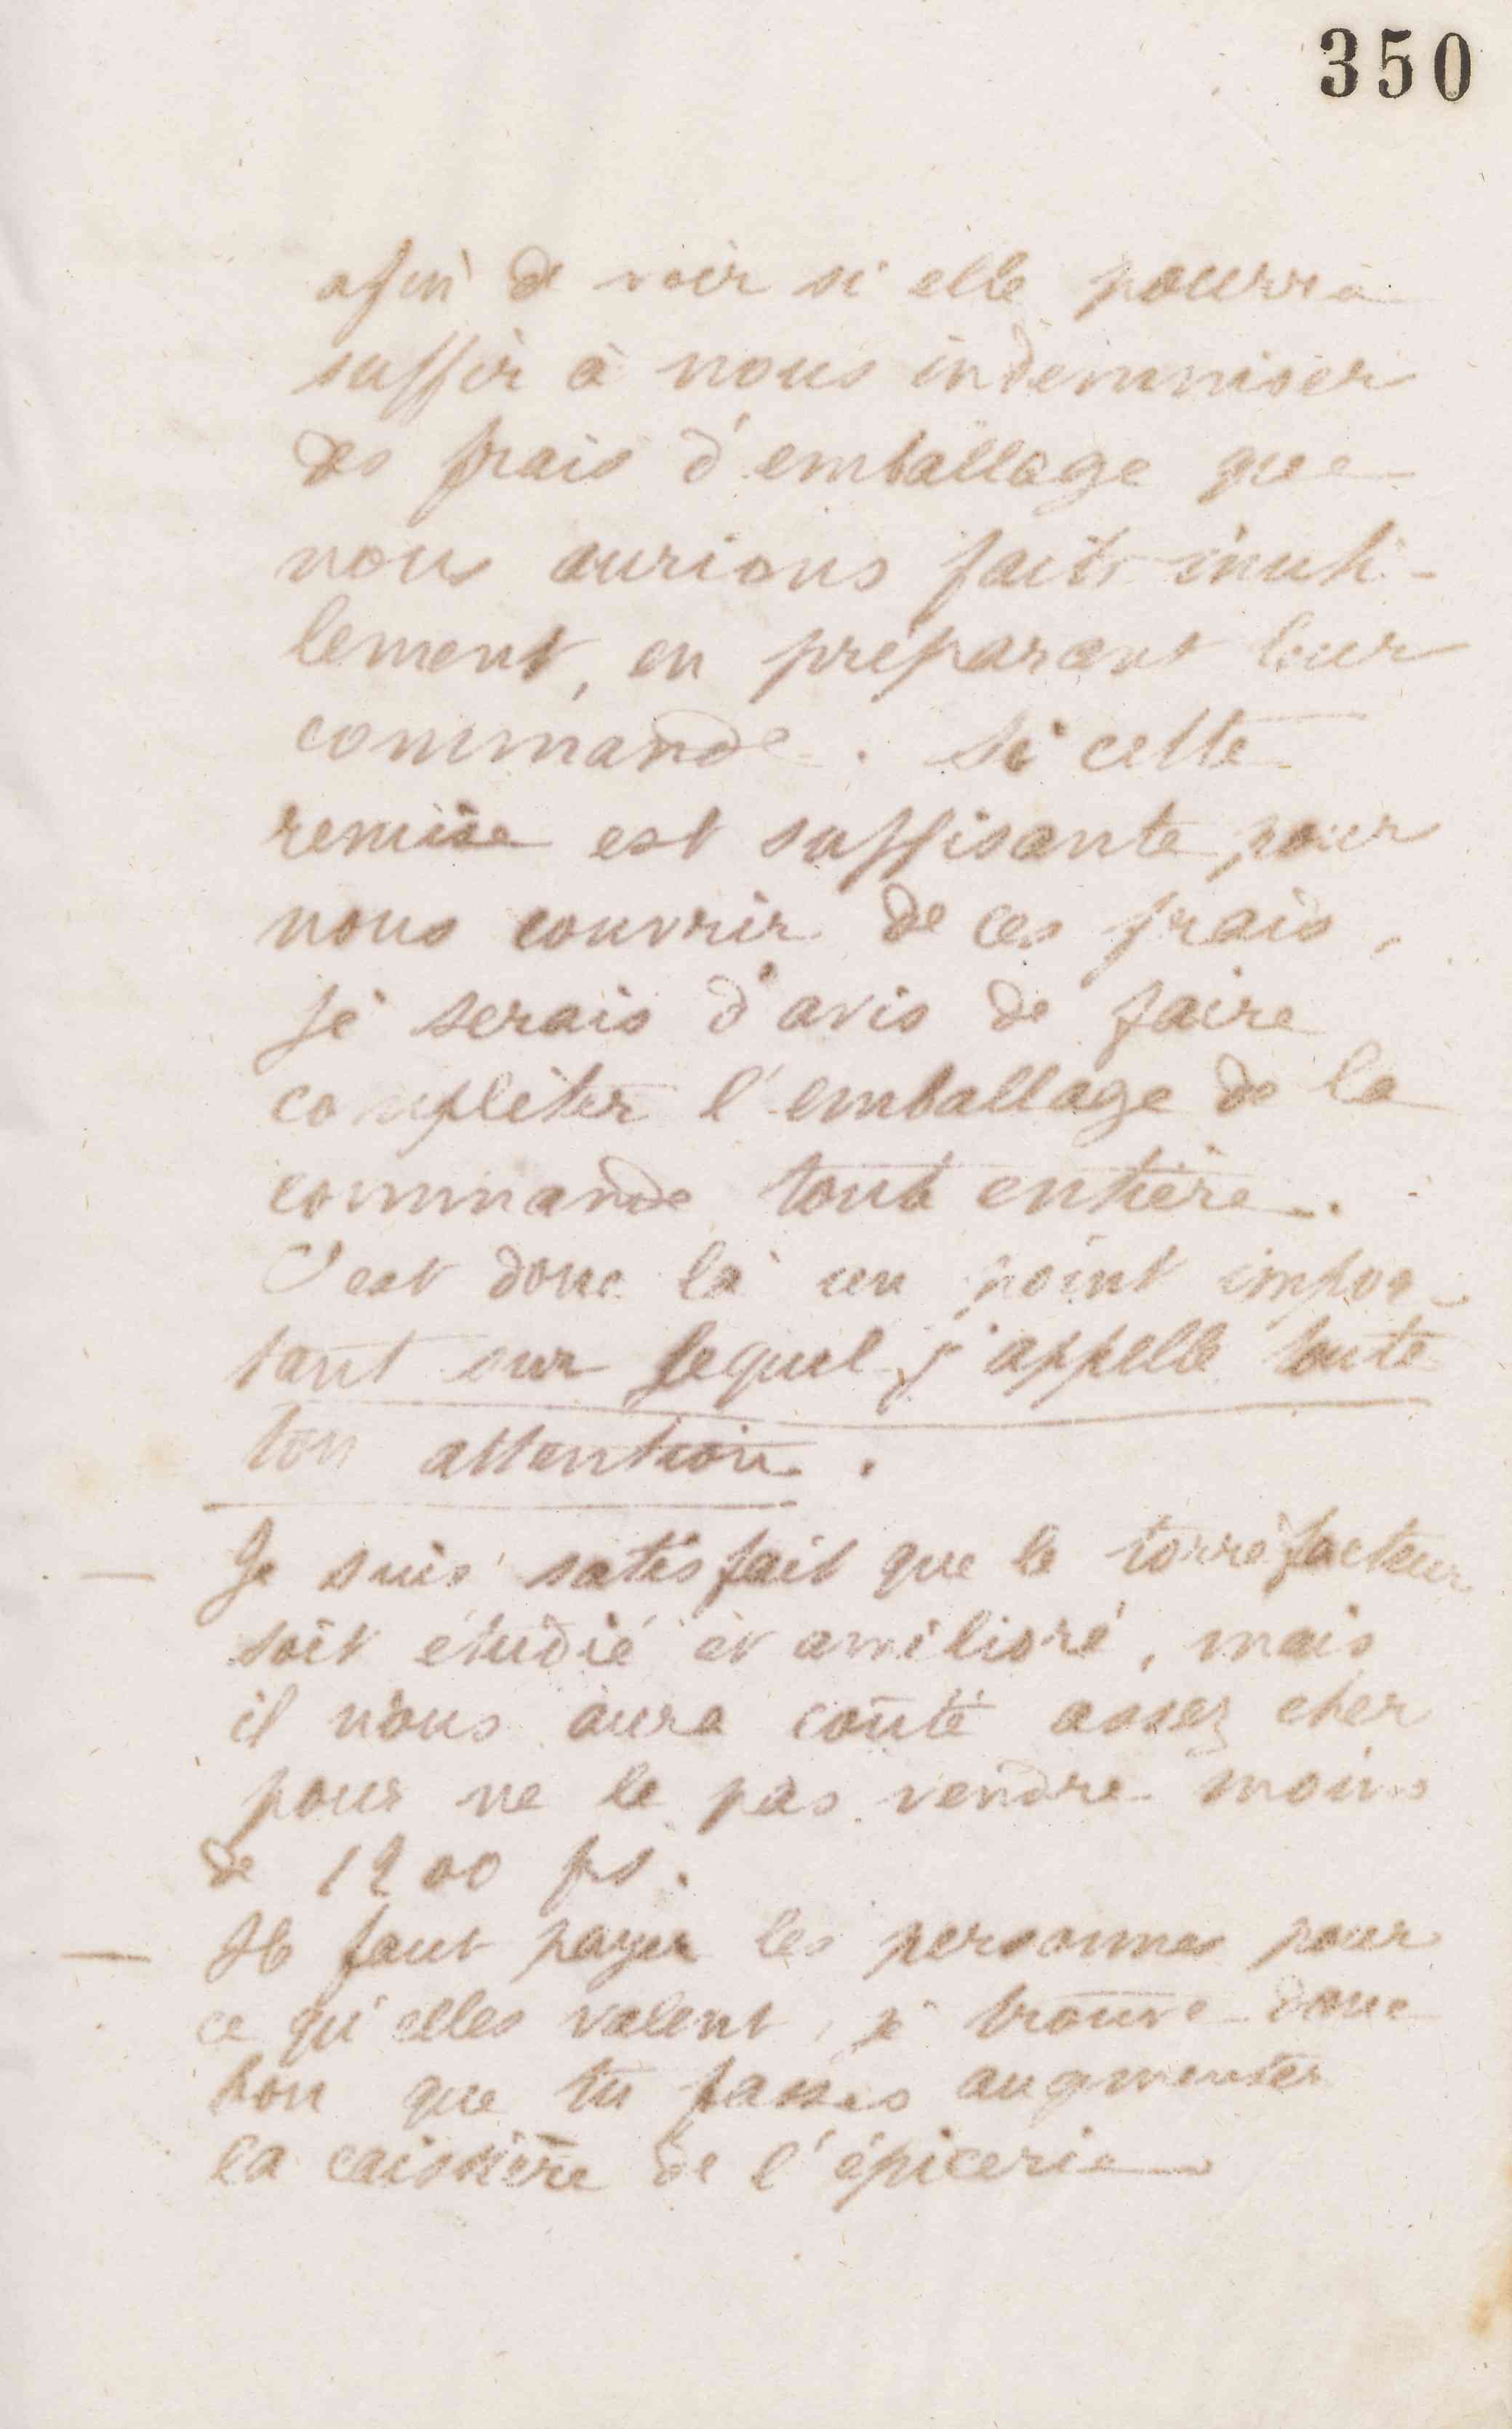 350
afin de voir si elle pourra
suffir à nous indemniser
des frais d'emballage que
nous aurions faits inuti-
lement, en préparant leur
commande. Si cette
remise est suffisante pour
nous couvrir de ces frais,
je serais d'avis de faire
compléter l'emballage de la
commande tout entière.
C'est donc là un point impor-
tant sur lequel j'appelle toute
ton attention.
— Je suis satisfait que le torréfacteur
soit étudié et amélioré, mais
il nous aura coûté assez cher
pour ne le pas vendre moins
de 1200 frs.
— Il faut payer les personnes pour
ce qu'elles valent, je trouve donc
bon que tu fasses augmenter
la caissière de l'épicerie